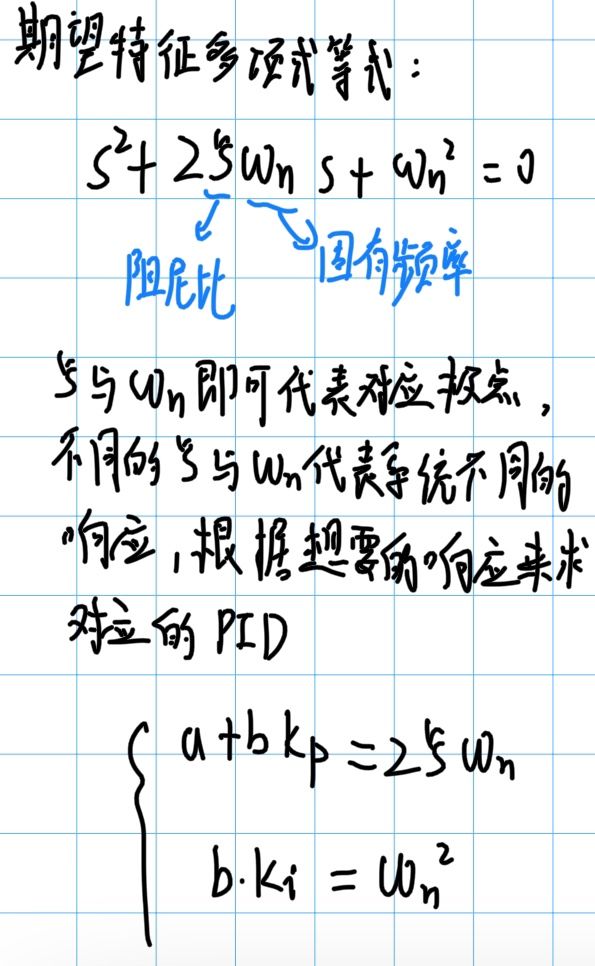 期望特征多项式等式：
s²+2ξωn s+ωn²=0
阻尼比 固有频率
ξ与ωn即可代表对应极点，
不同的ξ与ωn代表系统不同的
响应，根据想要的响应来求
对应的PID
a+bkp=2ξωn
b·ki=ωn²